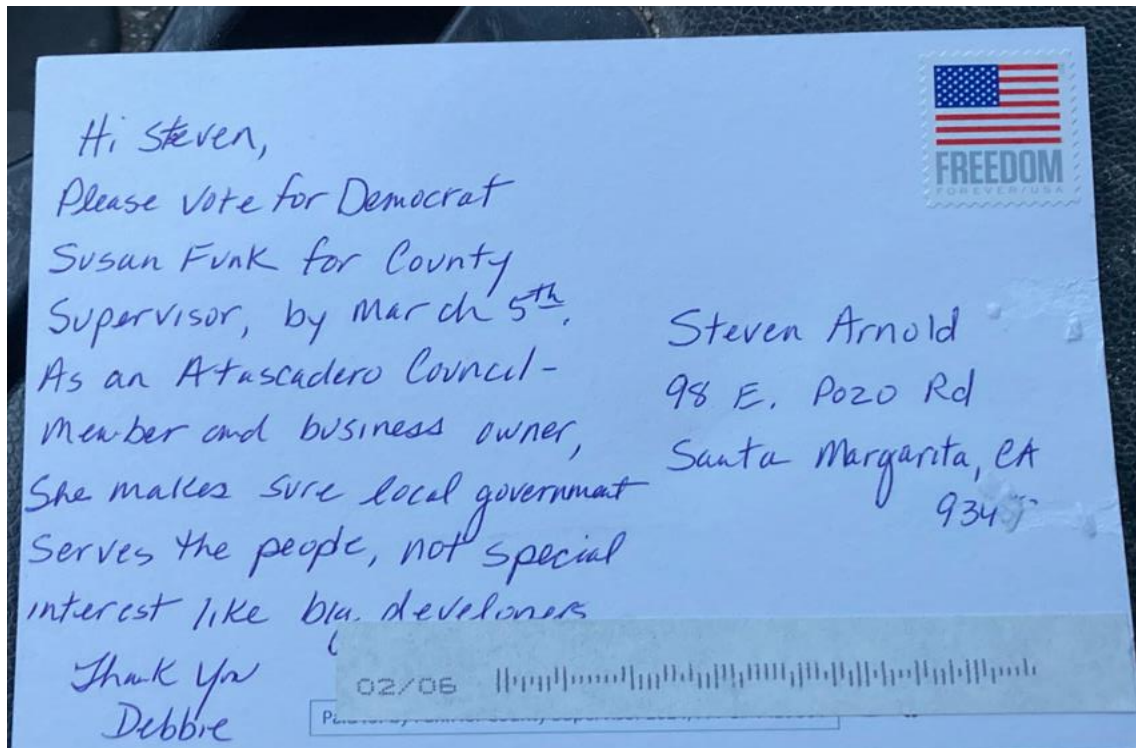 Hi Steven,
Please vote for Democrat
Susan Funk for County
Supervisor, by March 5th.
As an Atascadero Council-
member and business owner,
She makes sure local government
serves the people, not special
interest like big developers
Thank You
Debbie
FREEDOM
FOREVER/USA
Steven Arnold
98 E. Pozo Rd
Santa Margarita, CA
934
02/06